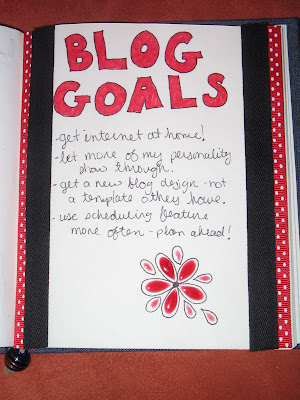 BLOG
GOALS
-get internet at home!
-let more of my personality
show through.
-get a new blog design -not
a template others have.
-use scheduling feature
more often -plan ahead!